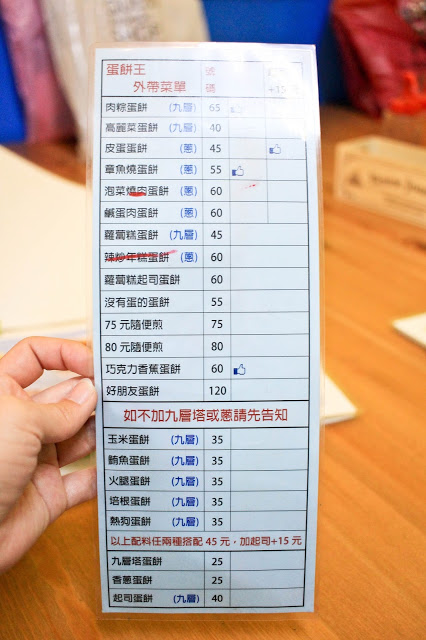 蛋餅王
外帶菜單 號碼 +15元
肉粽蛋餅 (九層) 65
高麗菜蛋餅 (九層) 40
皮蛋蛋餅 (蔥) 45
章魚燒蛋餅 (蔥) 55
泡菜燒肉蛋餅 (蔥) 60
鹹蛋肉蛋餅 (蔥) 60
蘿蔔糕蛋餅 (九層) 45
辣炒年糕蛋餅 (蔥) 60
蘿蔔糕起司蛋餅 60
沒有蛋的蛋餅 55
75元隨便煎 75
80元隨便煎 80
巧克力香蕉蛋餅 60
好朋友蛋餅 120
如不加九層塔或蔥請先告知
玉米蛋餅 (九層) 35
鮪魚蛋餅 (九層) 35
火腿蛋餅 (九層) 35
培根蛋餅 (九層) 35
熱狗蛋餅 (九層) 35
以上配料任兩種搭配 45 元，加起司+15 元
九層塔蛋餅 25
香蔥蛋餅 25
起司蛋餅 (九層) 40